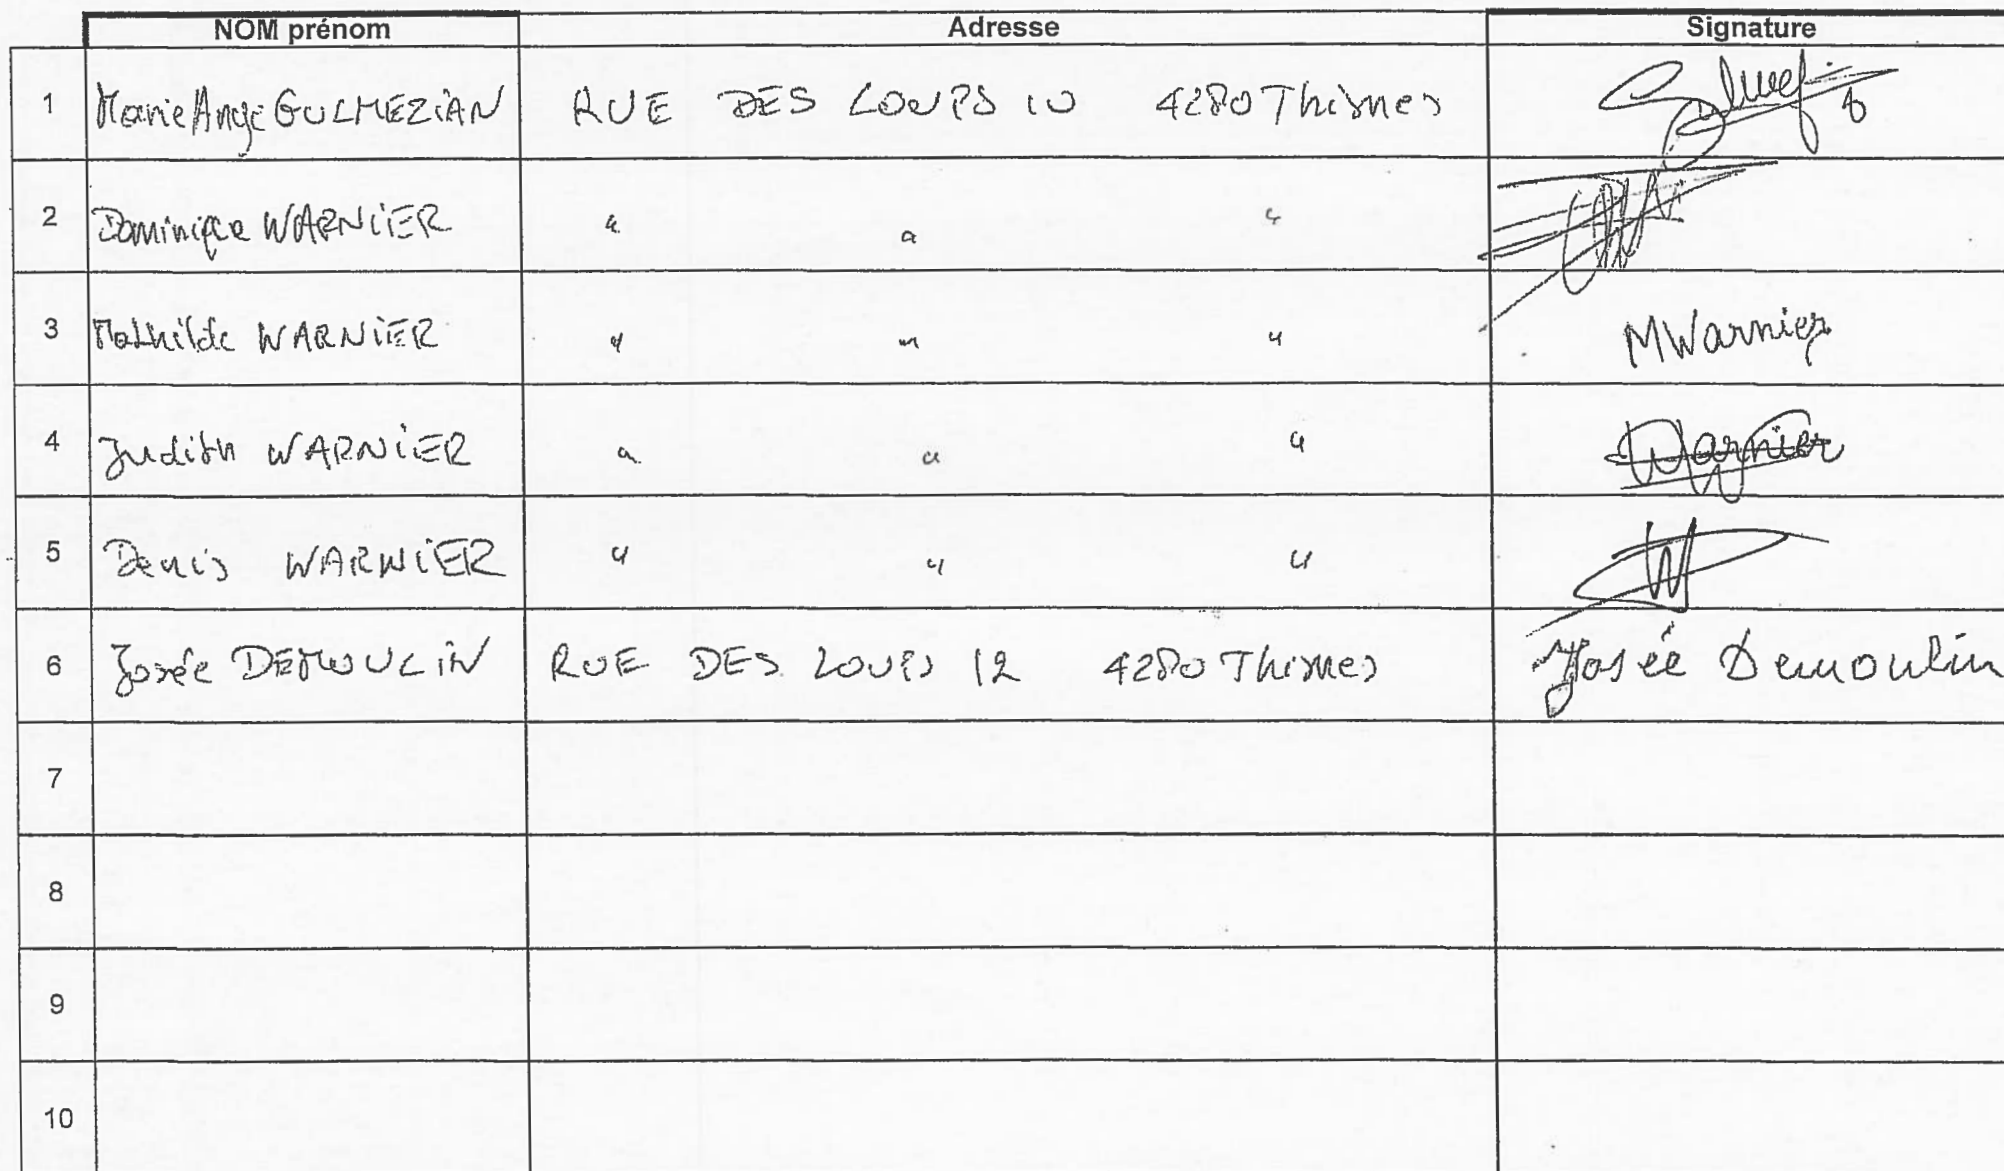 NOM prénom Adresse Signature
1 Marie Ange GULMEZIAN RUE DES LOUPS 10 4280 Thisnes
2 Dominique WARNIER " " "
3 Mathilde WARNIER " " " MWarnier
4 Judith WARNIER " " " Warnier
5 Denis WARNIER " " " W
6 Josée DEMOULIN RUE DES LOUPS 12 4280 Thisnes Josée Demoulin
7
8
9
10